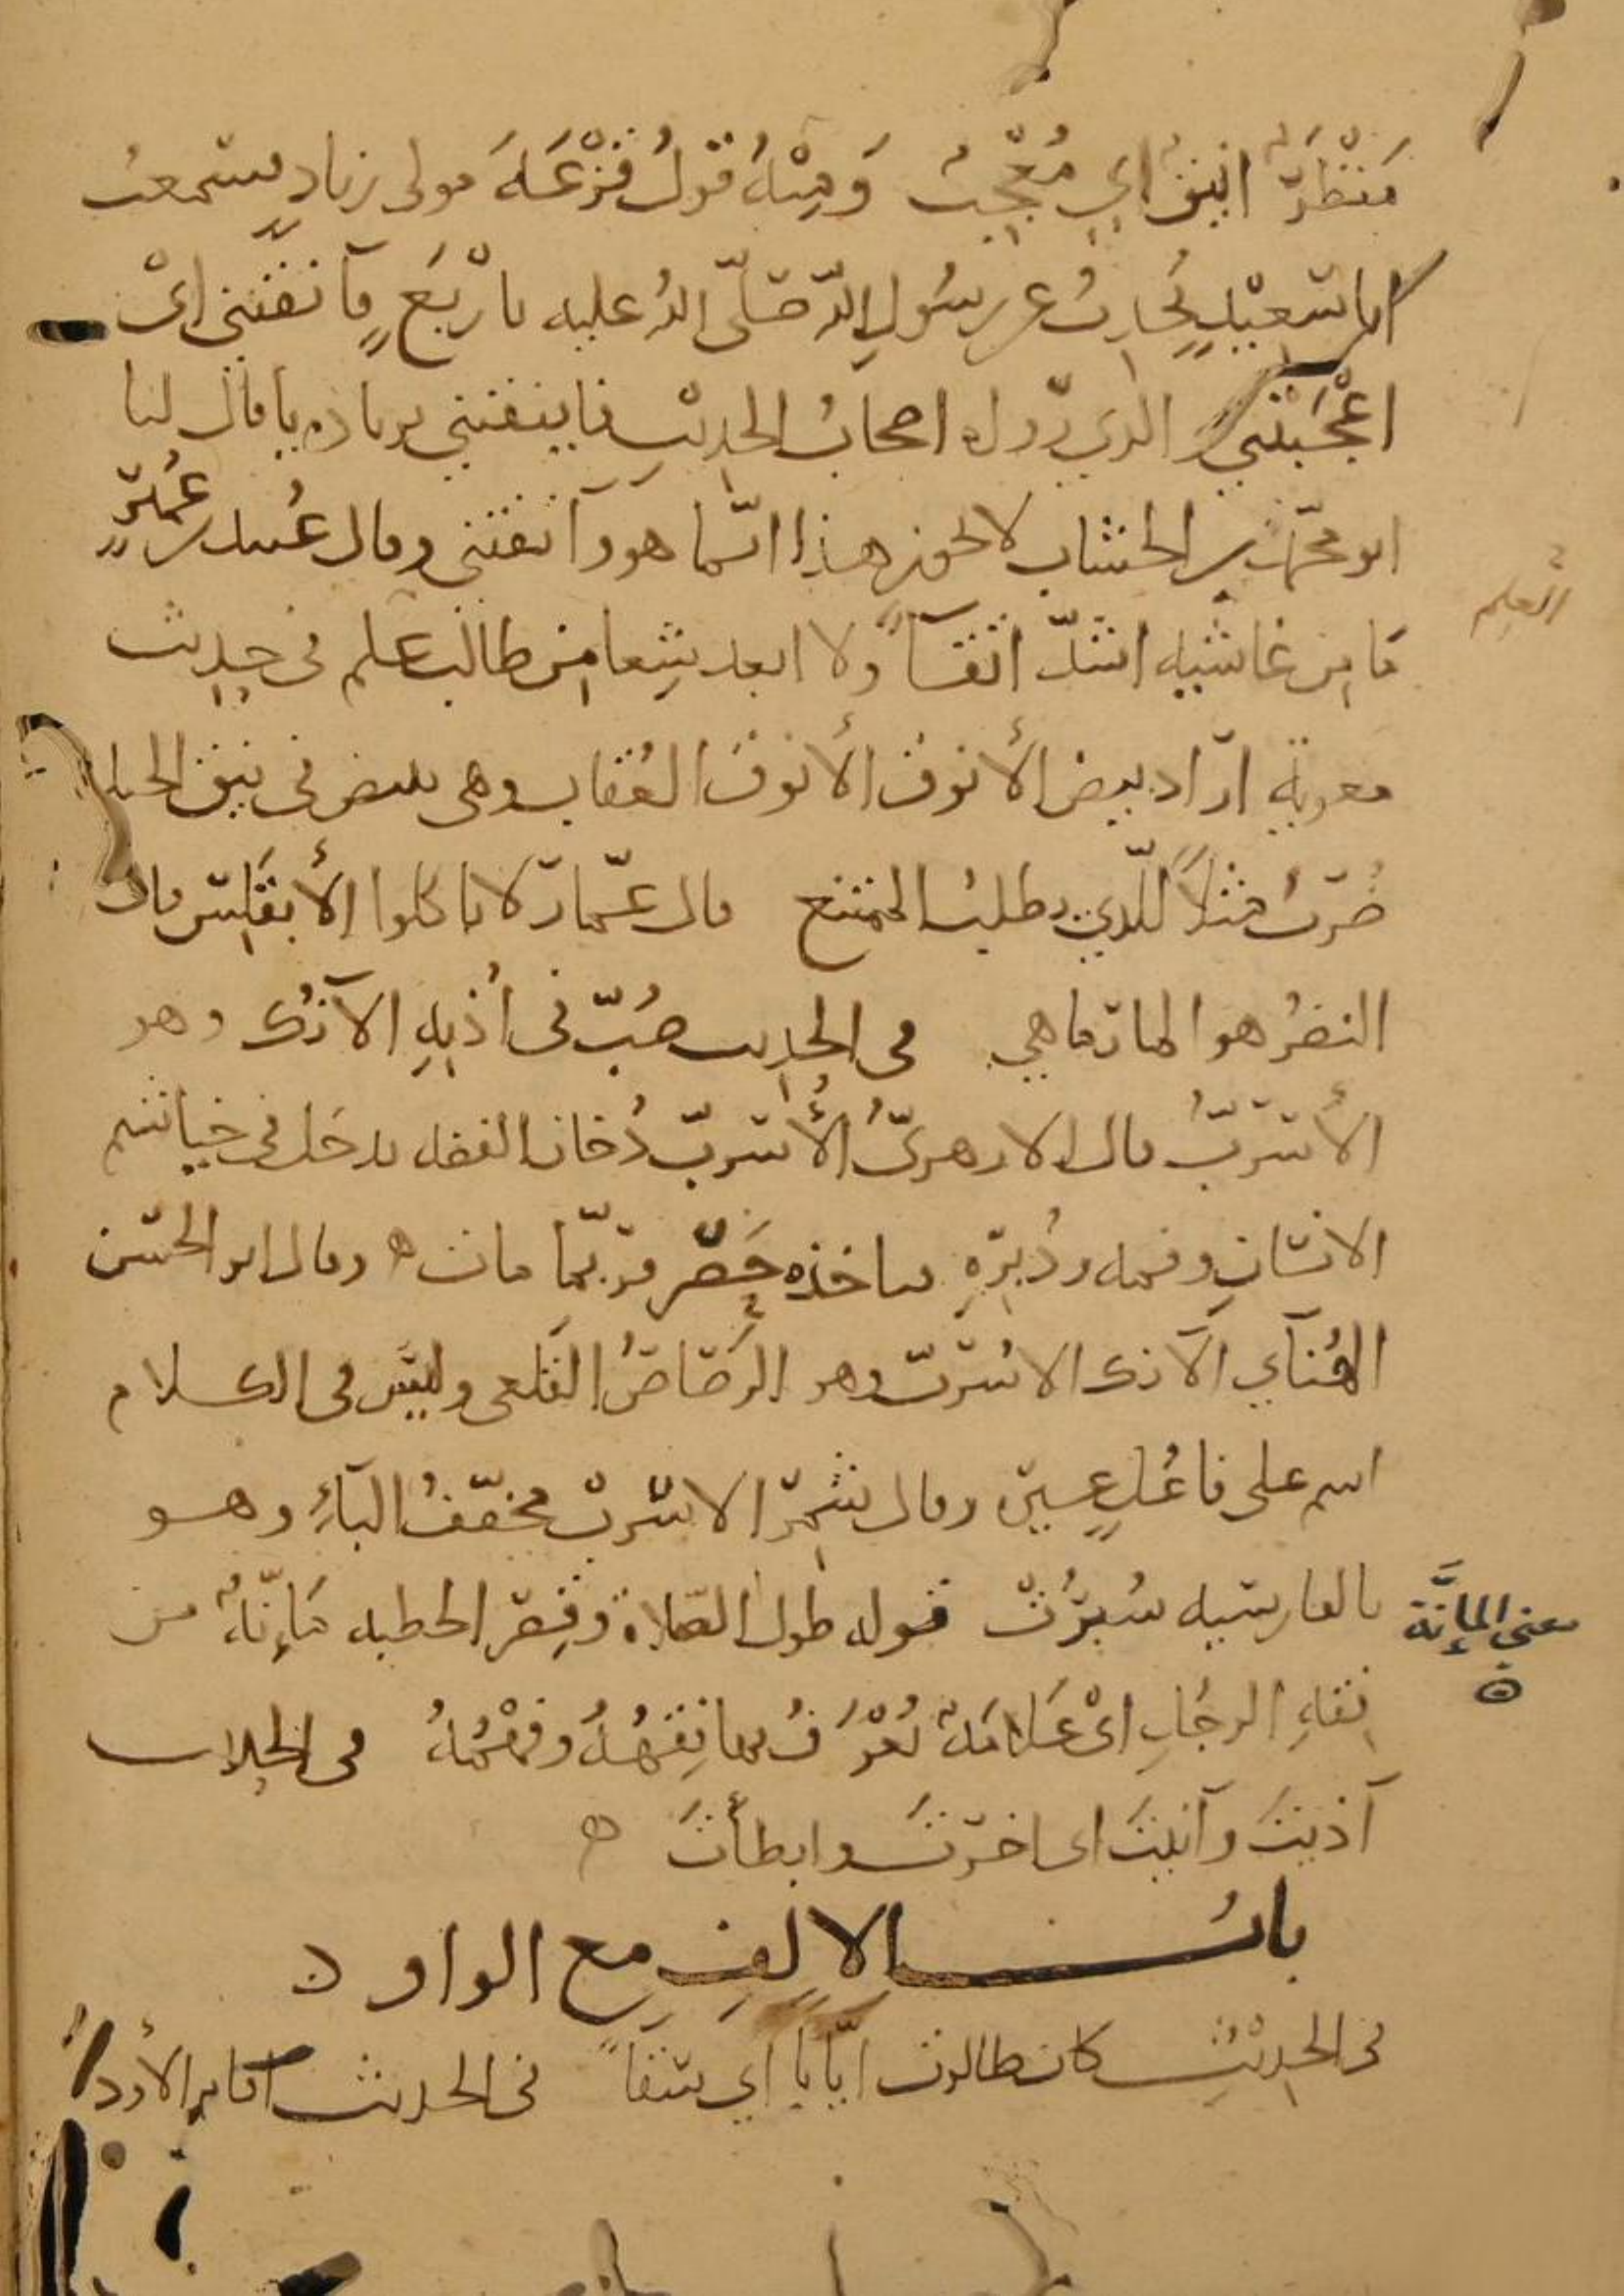 مَنْظَرٌ انيقٌ اي مُعْجِبٌ وَمِنْهُ قَوْلُ قَزْعَةَ مولى زيادٍ سمعتُ
ابا سَعِيْدٍ يُحَدِّثُ عن رسُولِ اللّه صَلّى اللهُ عليه بارْبَعٍ فآنقنني اىْ
اعْجَبْنَني الذي يروله اصحابُ الحديث فاينقنني قال لنا
ابو محمّد بن الخشاب لا يجوز هذا انّما هو وآنقنني وقال عُبيد بن عُمَيْرٍ
مَا مِن غاشيه اشدّ انقًا ولا ابعد شِبعا مِن طالب علم فى حديث
معوية اراد بيض الأنوق الأنوقُ العُقاب وهى تبيض فى نيق الجبل
ضُرِبَ مثلًا للّذي يطلبُ الممتنع قال عمّار لا تاكلوا الأنقليس قال
النضرُ هو المارماهي فى الحديث صُبّ فى اُذنِهِ الآنُك وهو
الأُسْرُبّ قال الازهريّ الأُسْرُبّ دُخان الفضه يدخل فى خياشيم
الانسانِ وفمه ودُبرِه فياخذه حَصر فربّما مات ه وقال ابو الحسن
الهُنآي الآنُك الاسُربّ وهو الرَصَاصُ القَلعى وليس فى الكلام
اسم على فاعُلٍ غيره وقال شَمِر الاسرُبْ مخفّفُ الباءِ وهو
بالفارسيه سُرُبْ قوله طولُ الصّلاة وقِصَر الخطبه مَاِنّةٌ من
فقهِ الرجُلِ اىْ عَلَامَةٌ يُعْرَفُ بها فِقهُهُ وفَهْمُهُ فى الحديث
آذيتَ وآنيتَ اى اخّرتَ وابطأتَ ه
بابُ الالِفِ مع الواو ه
فى الحديث كان طالوت ايّابا اي سقّاءً فى الحديث اقام الأود
العلم
معنى المإنَّة